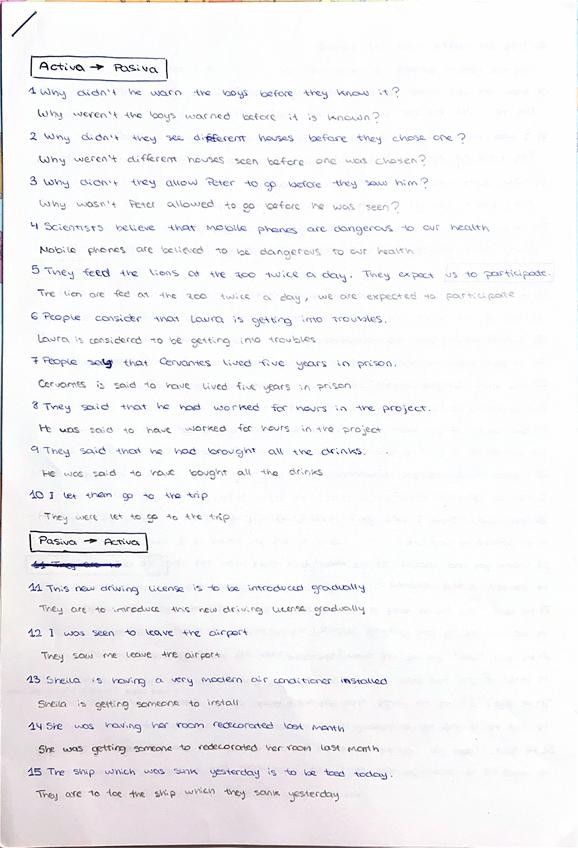 Activa → Pasiva
1 Why didn't he warn the boys before they know it?
Why weren't the boys warned before it is known?
2 Why didn't they see different houses before they chose one?
Why weren't different houses seen before one was chosen?
3 Why didn't they allow Peter to go before they saw him?
Why wasn't Peter allowed to go before he was seen?
4 Scientists believe that mobile phones are dangerous to our health
Mobile phones are believed to be dangerous to our health
5 They feed the lions at the zoo twice a day. They expect us to participate.
The lion are fed at the zoo twice a day, we are expected to participate
6 People consider that Laura is getting into troubles.
Laura is considered to be getting into troubles
7 People say that Cervantes lived five years in prison.
Cervantes is said to have lived five years in prison
8 They said that he had worked for hours in the project.
He was said to have worked for hours in the project
9 They said that he had brought all the drinks.
He was said to have bought all the drinks
10 I let them go to the trip
They were let to go to the trip
Pasiva → Activa
11 This new driving license is to be introduced gradually
They are to introduce this new driving license gradually
12 I was seen to leave the airport
They saw me leave the airport
13 Sheila is having a very modern air conditioner installed
Sheila is getting someone to install
14 She was having her room redecorated last month
She was getting someone to redecorated her room last month
15 The ship which was sunk yesterday is to be toed today.
They are to toe the ship which they sank yesterday